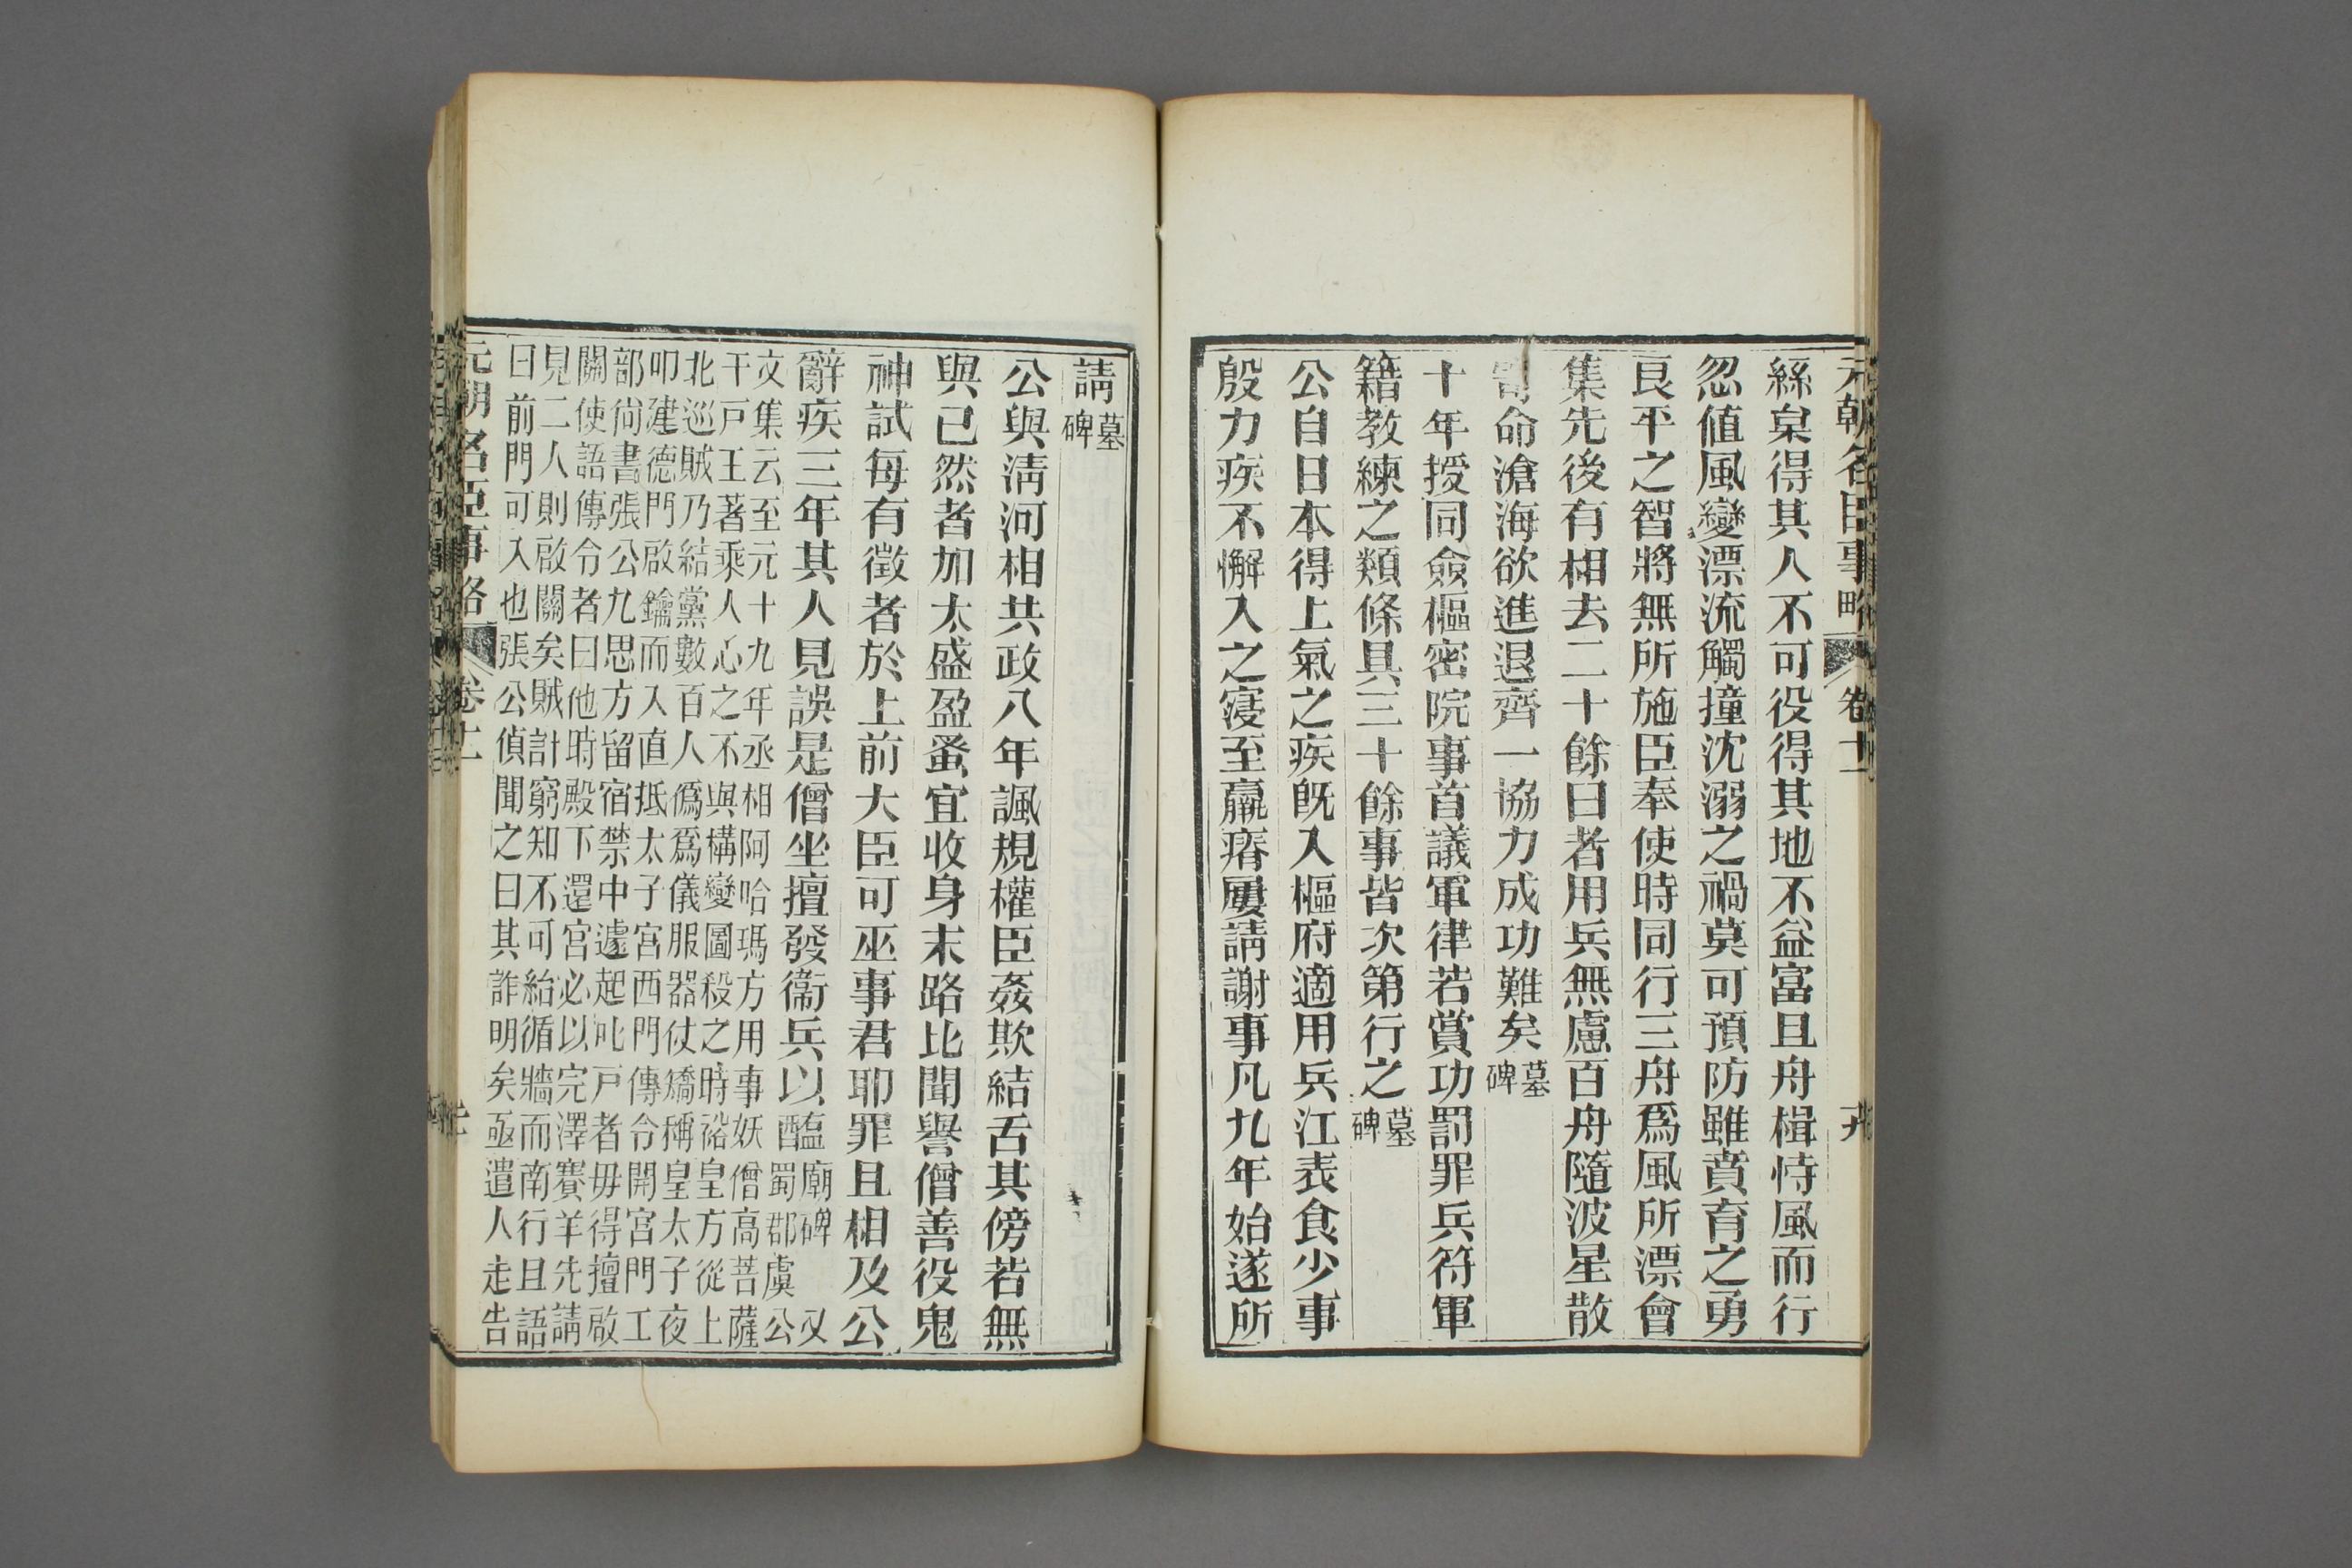 元朝名臣事略 卷十一
絲枲得其人不可役得其地不益富且舟楫恃風而行
忽值風變漂流觸撞沈溺之禍莫可預防雖賁育之勇
良平之智將無所施臣奉使時同行三舟爲風所漂會
集先後有相去二十餘日者用兵無慮百舟隨波星散
寄命滄海欲進退齊一協力成功難矣墓碑
十年授同僉樞密院事首議軍律若賞功罰罪兵符軍
籍教練之類條具三十餘事皆次第行之墓碑
公自日本得上氣之疾既入樞府適用兵江表食少事
殷力疾不懈入之寖至羸瘠屢請謝事凡九年始遂所
請墓碑
公與清河相共政八年諷規權臣姦欺結舌其傍若無
與已然者加太盛盈蚤宜收身末路比聞譽僧善役鬼
神試每有徵者於上前大臣可巫事君耶罪且相及公
辭疾三年其人見誤是僧坐擅發衞兵以醢廟碑 又蜀郡虞公
文集云至元十九年丞相阿哈瑪方用事妖僧高菩薩
千戸王著乘人心之不與構變圖殺之時裕皇方從上
北巡賊乃結黨數百人僞爲儀服器仗矯稱皇太子夜
叩建德門啟鑰而入直抵太子宮西門傳令開宮門工
部尚書張公九思方留宿禁中遽起叱戸者毋得擅啟
關使語傳令者曰他時殿下還宮必以完澤賽羊先請
見二人則啟關矣賊計窮知不可紿循牆而南行且語
曰前門可入也張公偵聞之曰其詐明矣亟遣人走告
元朝名臣事略 卷十一